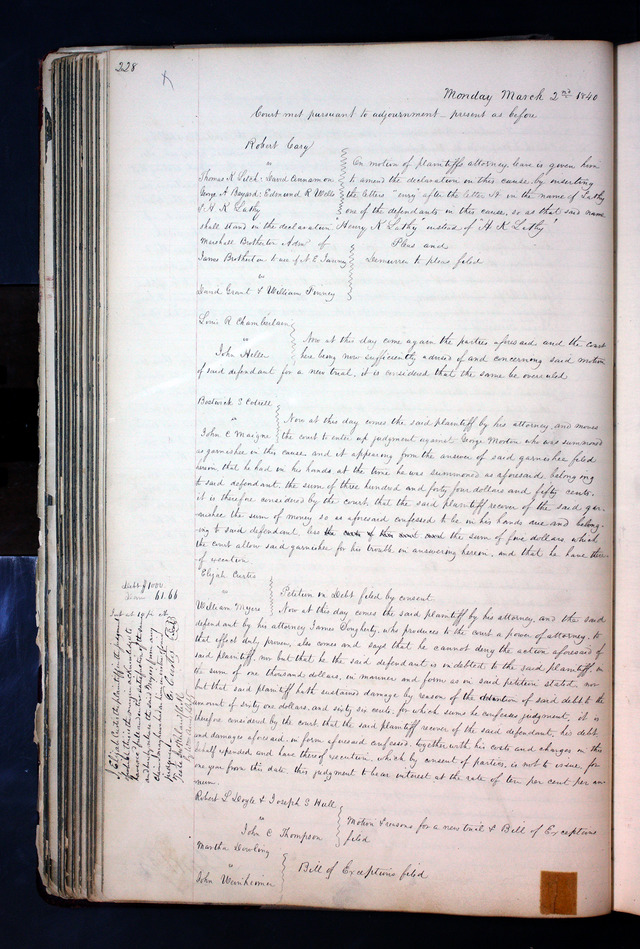 228
Monday March 2nd 1840
Court met pursuant to adjournment present as before
Robert Cary
"
Thomas N. : David Annan
Geo. A Bayard: Edmund R Wells
& H K Lathy
On motion of plaintiffs attorney leave is given him
to amend the declaration in this cause, by inserting
the letters "enry" after the letter H. in the name of Lathy
one of the defendants in this cause, so as that said name
shall stand in the declaration "Henry K Lathy" instead of "H K Lathy"
Marshall Brotherton Admr of
James Brotherton to use of N E Janney
"
David Grant & William Finney
Pleas and
Demurrer to pleas filed
Louis R Chamberlain
"
John Heller
Now at this day come again the parties aforesaid and the court
here being now sufficiently advised of and concerning said motion
of said defendant for a new trial, it is considered that the same be overruled
Bostwick S
"
John C Maigne
Now at this day comes the said plaintiff by his attorney, and moves
the court to enter up judgment against George Morton who was summoned
as garnishee in this cause, and it appearing from the answer of said garnishee filed
herein, that he had in his hands at the time he was summoned as aforesaid belonging
to said defendant, the sum of three hundred and forty four dollars and fifty cents.
it is therefore considered by the court, that the said plaintiff recover of the said gar-
nishee the sum of money so as aforesaid confessed to be in his hands due and belong-
ing to said defendant, less the sum of five dollars which
the court allow said garnishee for his trouble in answering herein, and that he have there-
of execution
Elijah Curtis
"
William Myers
Petition in Debt filed by consent
Now at this day comes the said plaintiff by his attorney, and the said
defendant by his attorney James Dougherty, who produces to the court a power of attorney, to
that effect duly proven, also comes and says that he cannot deny the action aforesaid of
said plaintiff, nor but that he the said defendant is indebted to the said plaintiff, in
the sum of one thousand dollars, in manner and form as in said petition stated, nor
but that said plaintiff hath sustained damage by reason of the detention of said debt to the
amount of sixty one dollars, and sixty six cents, for which sums he confesses judgment, it is
therefore considered by the court that the said plaintiff recover of the said defendant, his debt
and damages aforesaid, in form aforesaid confessed, together with his costs and charges in this
behalf expended and have thereof execution, which by consent of parties, is not to issue for
one year from this date, this judgment to bear interest at the rate of ten per cent per an-
num
Debt $1000.
Dam 61.66
Int at 10 pc
Robert L Doyle & Joseph S Hull
"
John C Thompson
Motion & reasons for a new trial & Bill of Exceptions
filed
Martha Dowling
"
John Weinheimer
Bill of Exceptions filed